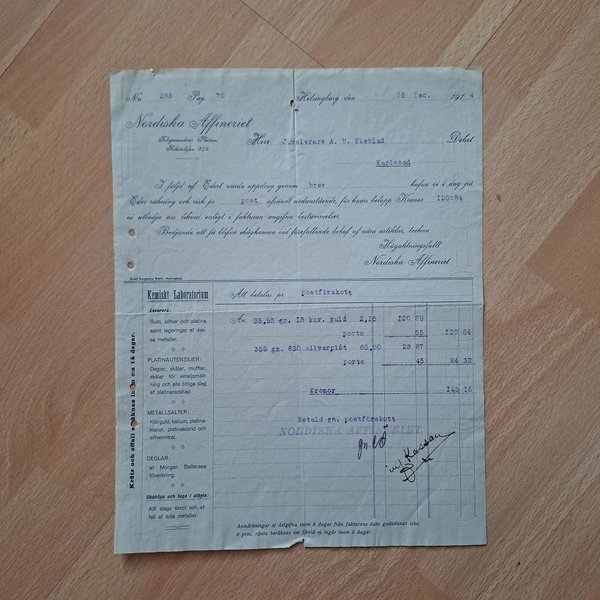 No 293 Pag. 70 Helsingborg den 15 Dec. 1914
Nordiska Affineriet
Telegramadress: Platina
Rikstelefon 875.
Herr Juvelerare A. M. Ekeblad Debet
Karlstad
I följd af Edert värda uppdrag genom brev hafva vi i dag på
Eder räkning och risk pr post afsändt nedanstående, för hvars belopp Kronor 120:84
vi utbedja oss likvid enligt i fakturan angifna bestämmelser.
Bedjande att få blifva ihågkomna vid förefallande behof af våra artiklar, teckna
Högaktningsfullt
Nordiska Affineriet
Kemiskt Laboratorium
Levererar:
Guld, silfver och platina
samt legeringar af des-
sa metaller.
PLATINAUTENSILIER:
Deglar, skålar, mufflar,
skålar för emaljsmält-
ning och alla öfriga slag
af platinaredskap
METALLSALTER:
Klorguld, kalium, platina-
klorur, platinaklorid och
silfvernitrat.
DEGLAR:
af Morgan Battersea
tillverkning.
Uppköpa och taga i utbyte:
Allt slags skrot och af-
fall af ädla metaller.
Krätz och affall afräknas inom ca 14 dagar.
Att betalas pr postförskott
An 55,95 gr. 18 kar. guld 2,15 120 29
porto 55 120 84
359 gr. 830 silverplåt 66,50 23 87
porto 45 24 32
Kronor 145 16
Betald gn. postförskott
NORDISKA AFFINERIET
Anmärkningar ej delgifna inom 8 dagar från fakturans dato godkännas icke.
6 proc. ränta beräknas om likvid ej ingår inom 8 dagar.